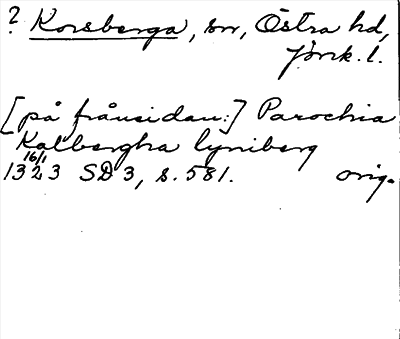 ? Korsberga, sn, Östra hd,
Jönk. l.
[på frånsidan:] Parochia
Kalbergha lyniberg
16/1
1323 SD 3, s. 581. orig.